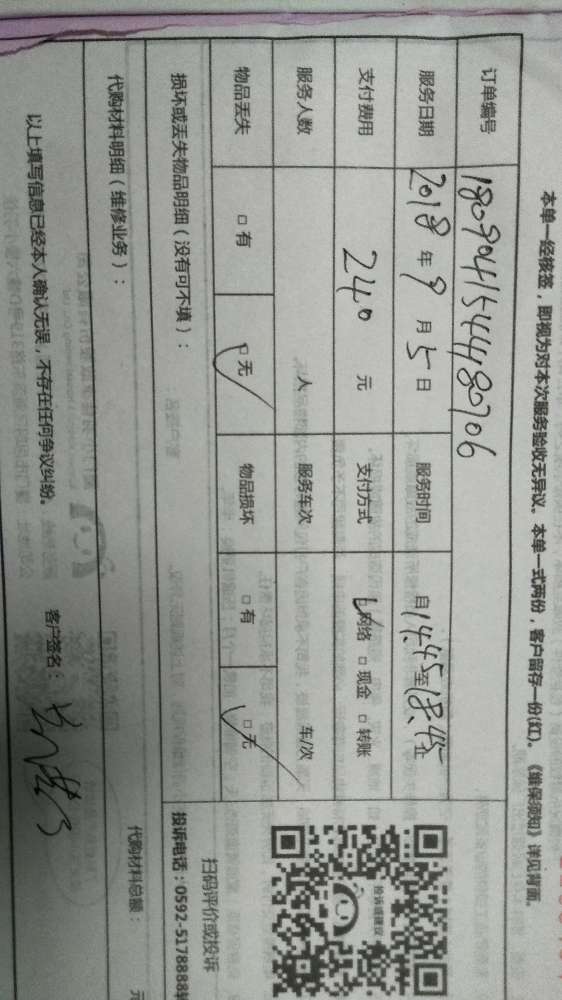 本单一经核签，即视为对本次服务验收无异议。本单一式两份，客户留存一份(红)。《维保须知》详见背面。
订单编号 180904154480706
服务日期 2018 年 9 月 5 日 服务时间 自 14.45 至 18.45 止
支付费用 240 元 支付方式 □网络 □ 现金 □ 转账
服务人数 人 服务车次 车/次
物品丢失 □ 有 □ 无 物品损坏 □ 有 □ 无
损坏或丢失物品明细（没有可不填）：
代购材料明细（维修业务）： 代购材料总额： 元
以上填写信息已经本人确认无误，不存在任何争议纠纷。 客户签名：
投诉或建议
扫码评价或投诉
投诉电话：0592-5178888转